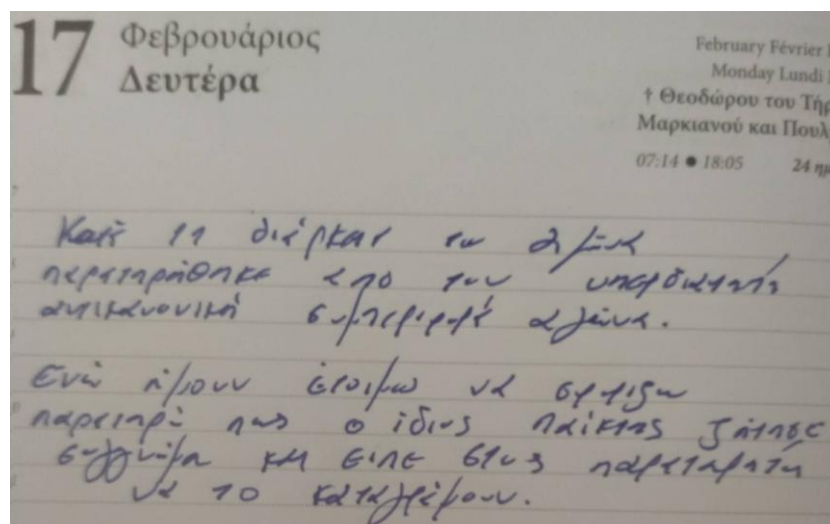 17 Φεβρουάριος
Δευτέρα
February Février
Monday Lundi
† Θεοδώρου του Τήρ
Μαρκιανού και Πουλχ
07:14 ● 18:05 24 ημ
Κατά τη διάρκεια του αγώνα
παρατηρήθηκε από τον
αντικανονική συμπεριφορά αγώνα.
Ενώ ήμουν έτοιμω να σφυριξω
παρατηρώ πως ο ίδιος παίκτης ζήτησε
συγγνώμη και είπε στους παρατηρητή
να το καταγράψουν.